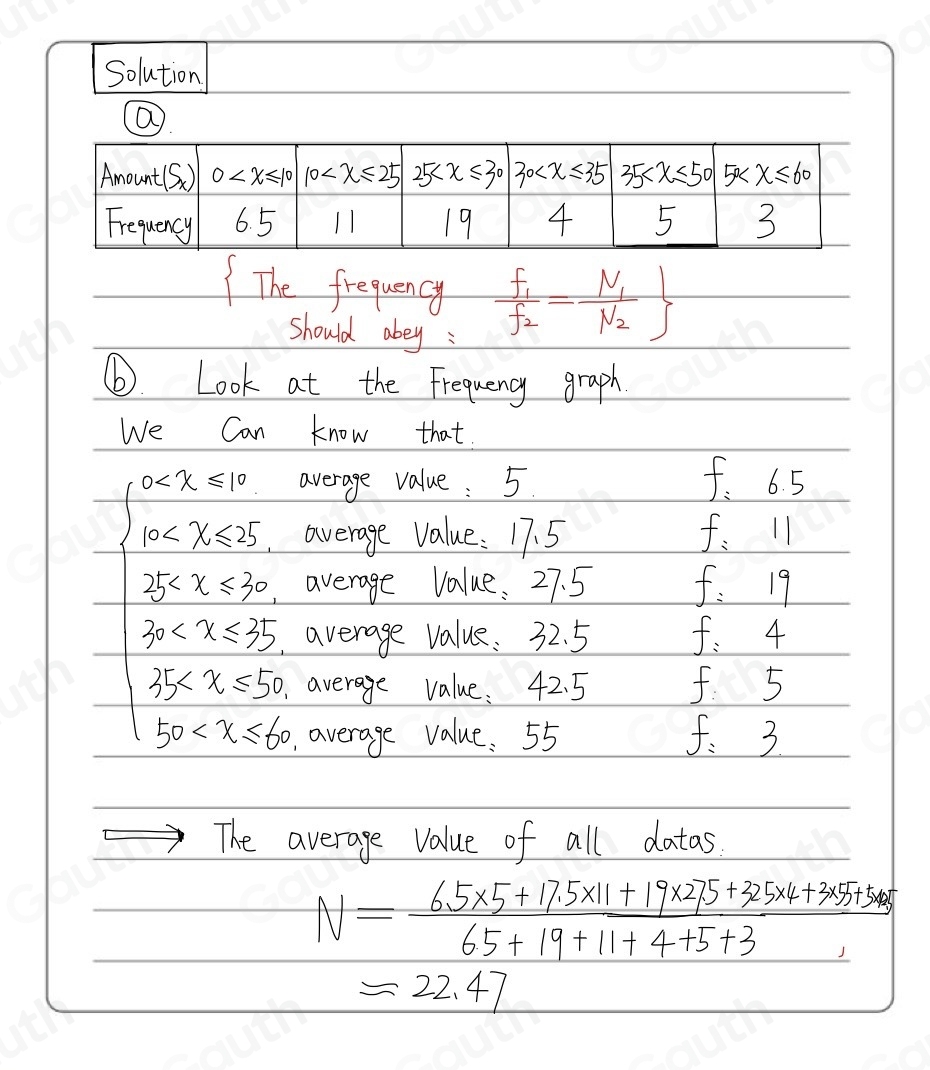 Solution.
ⓐ.
Amount($x) 0<x≤10 10<x≤25 25<x≤30 30<x≤35 35<x≤50 50<x≤60
Frequency 6.5 11 19 4 5 3
{ The frequency f₁/f₂ = N₁/N₂ }
should abey:
ⓑ. Look at the Frequency graph.
We Can know that.
0<x≤10. average value: 5. f: 6.5
10<x≤25, average Value: 17.5 f: 11
25<x≤30, average Value: 27.5 f: 19
30<x≤35, average value: 32.5 f: 4
35<x≤50, average value: 42.5 f: 5
50<x≤60, average value: 55 f: 3.
⟹ The average value of all datas.
N = 6.5×5+17.5×11+19×27.5+32.5×4+3×55+5×42.5
6.5+19+11+4+5+3
≈ 22.47
Gauth